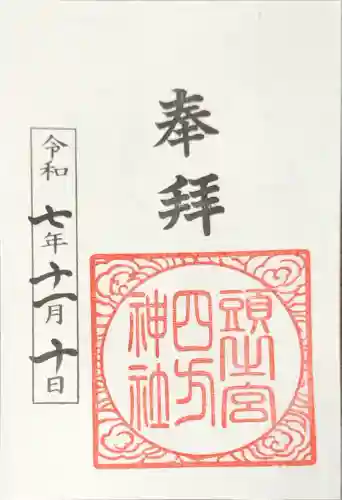 奉拝
頭之宮
四方
神社
令和七年十一月十日